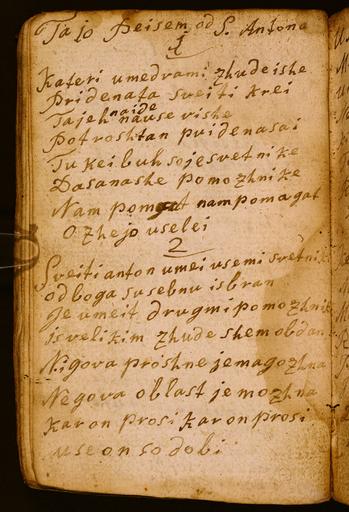 Ta 10 Peisem od S. Antona
1
Kateri umedrami zhudeishe
Pridenata sveiti krei
Tajeh naide nause vishe
Potroshtan pridenasai
Tu kei buh sojesvetnike
Dasanashe pomozhnike
Nam pomagat nam pomagat
Ozhejo uselei
2
Sveiti anton umei usemi svetnik
od boga susebnu isbran
Je umeit drugmi pomozhnik
is velikim zhudeshem obdan
Nigova proshne je magozhna
Negova oblast je mozhna
Kar on prosi kar on prosi
use on sodobi